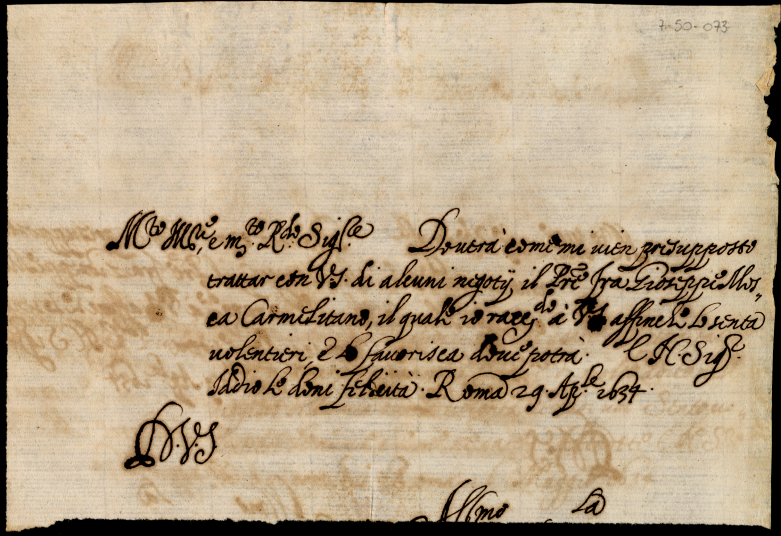 7-50-073
M.to Ill.re, e m.to R.do Sig.re Dovrà come mi vien presupposto
trattar con V.S. di alcuni negotÿ il Pre fra Gioseppe Mos=
ca Carmelitano, il quale io racc.do à V.S. affinche lo senta
volentieri, e lo favorisca dove potrà. E N. Sig.re
Iddio le doni felicità. Roma 29 Ap.le 1634.
D.V.S.
Aff.mo